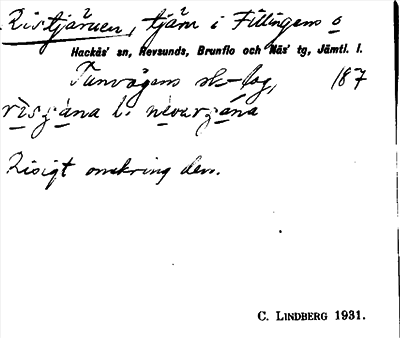 Ristjärnen, tjärn i Fillingens o
Hackås' sn, Revsunds, Brunflo och Näs' tg, Jämtl. l.
Tunvågens sk-lag, 187
Risigt omkring den.
C. LINDBERG 1931.